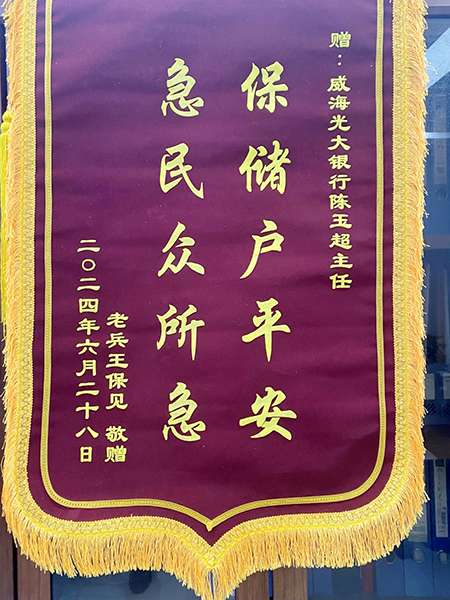 赠：威海光大银行陈玉超主任
保储户平安
急民众所急
老兵王保见 敬赠
二〇二四年六月二十八日